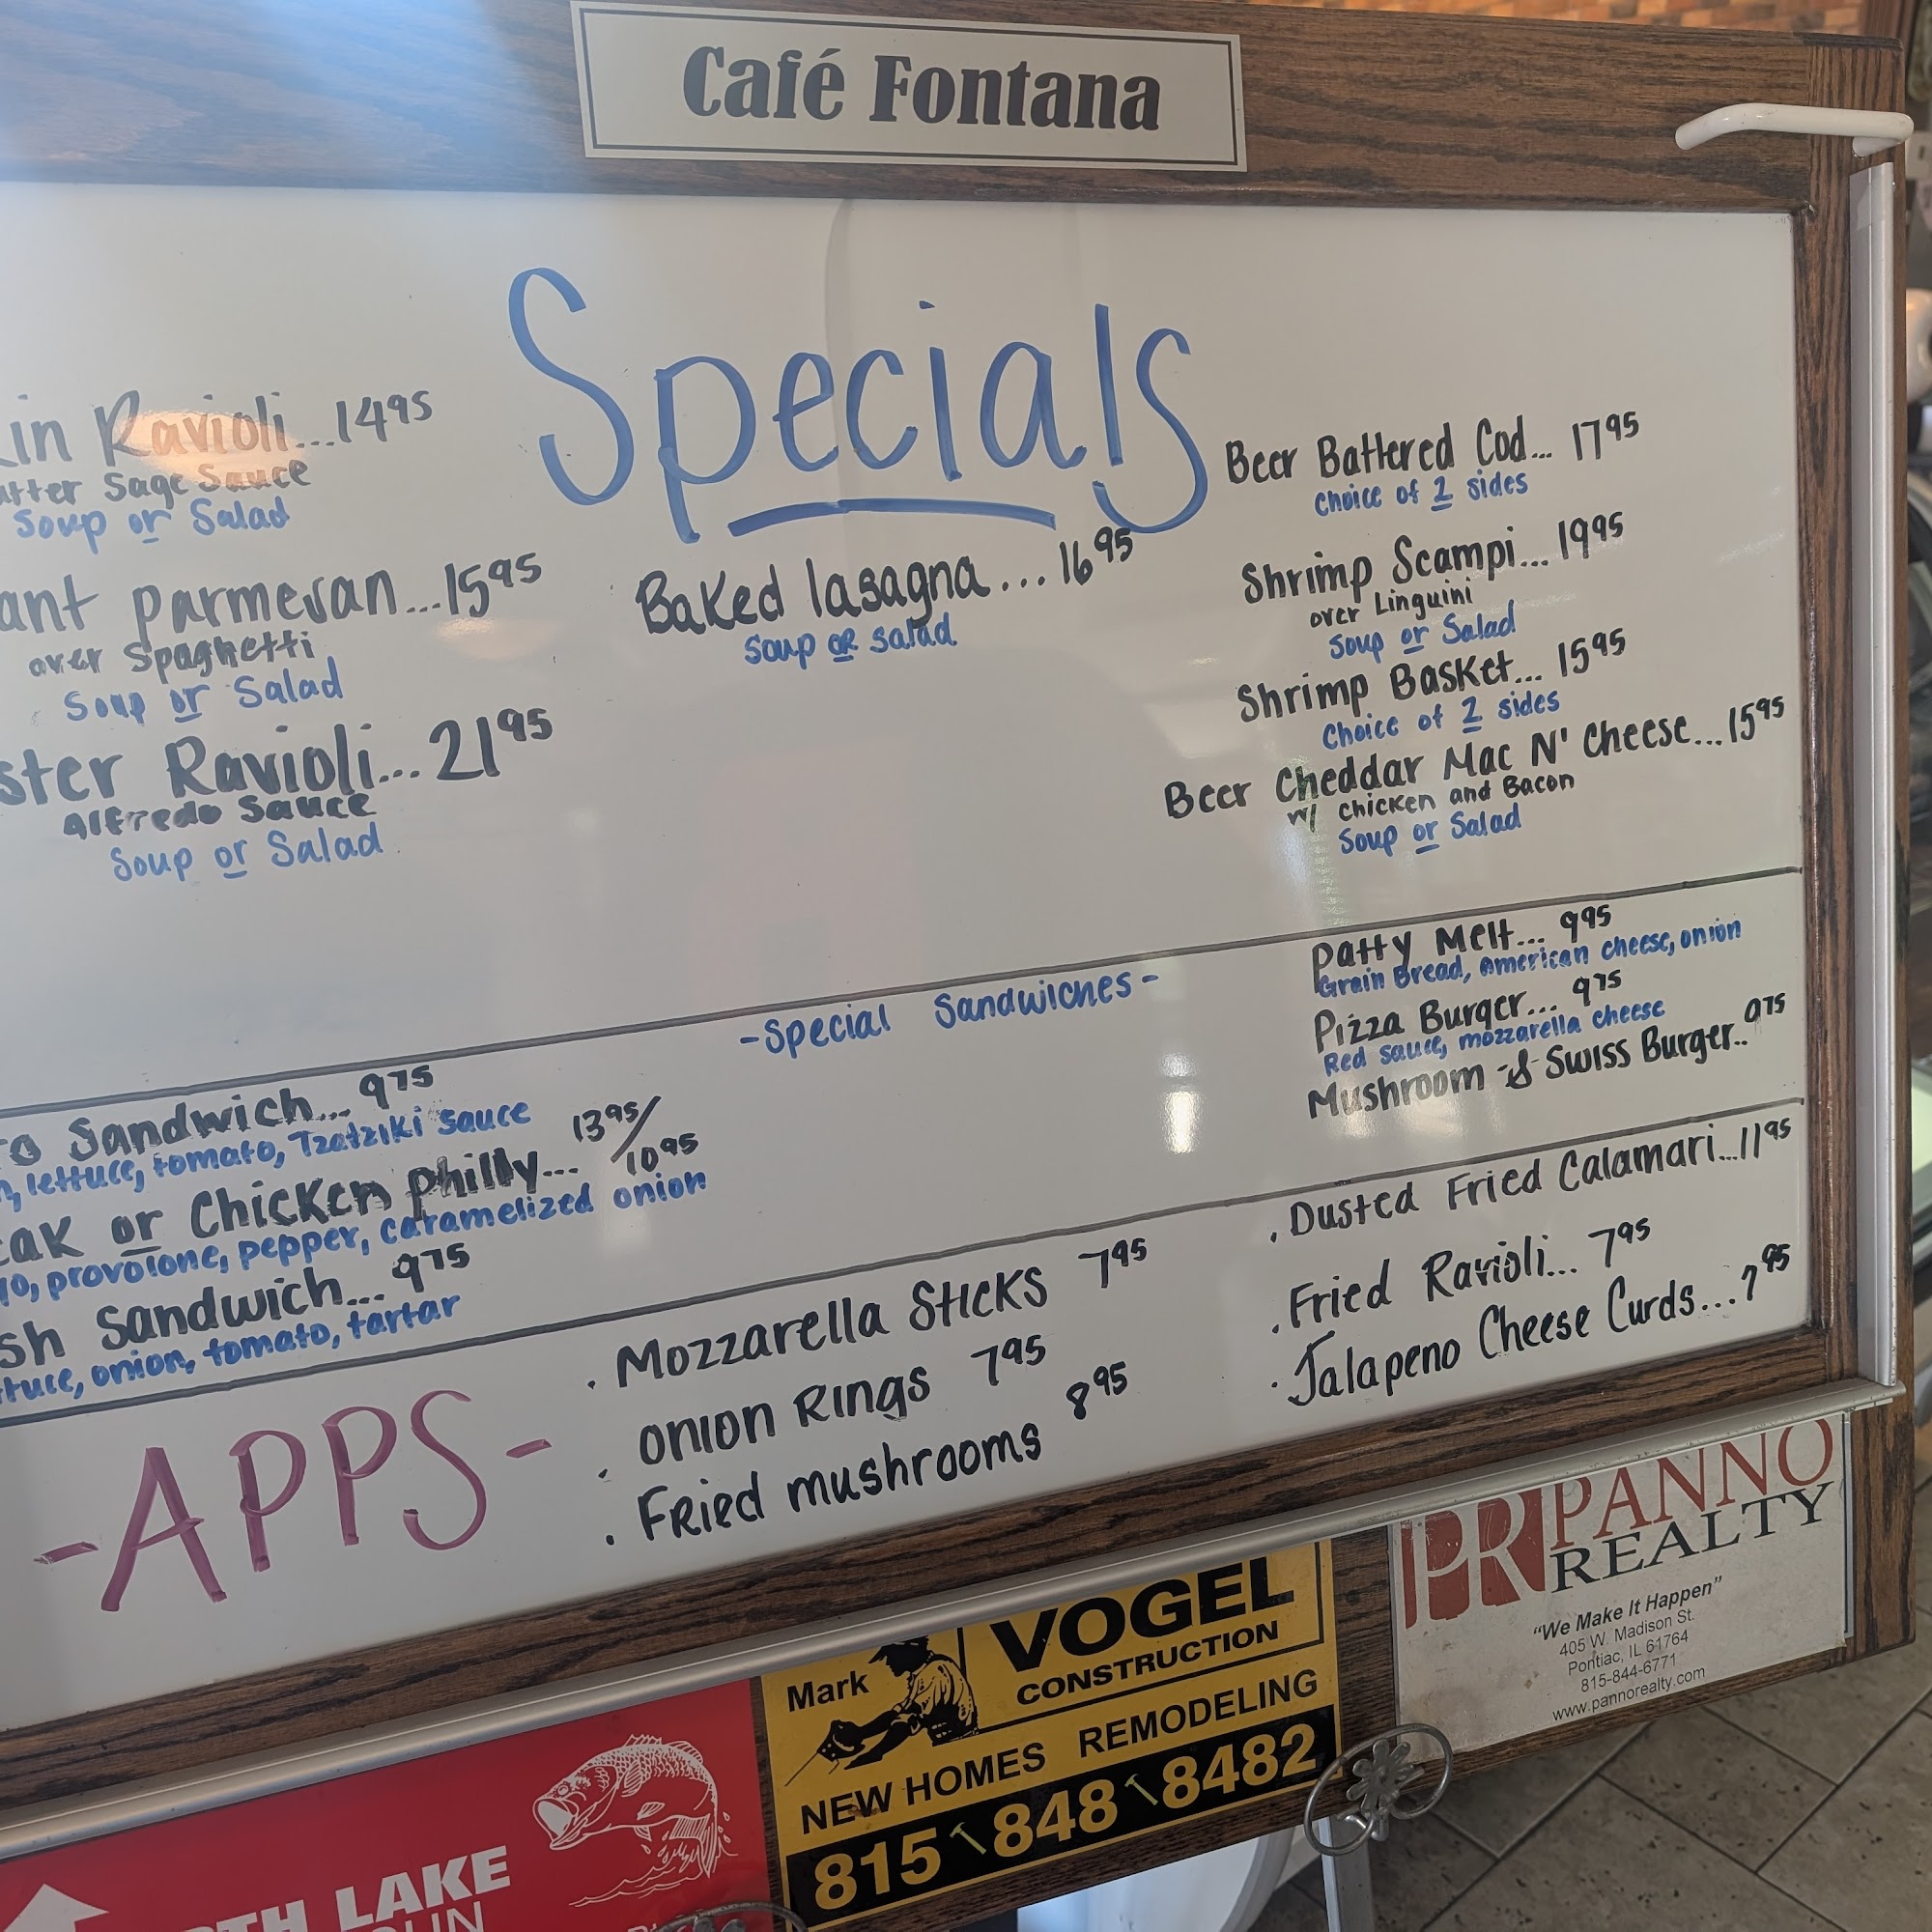 Café Fontana
Specials
in Ravioli...14 95
Sage Sauce
Soup or Salad
Parmesan...15 95
over Spaghetti
Soup or Salad
Ravioli...21 95
Alfredo Sauce
Soup or Salad
Baked lasagna...16 95
Soup OR salad
Beer Battered Cod... 17 95
Choice of 2 sides
Shrimp Scampi...19 95
over Linguini
Soup or Salad
Shrimp Basket...15 95
Choice of 2 sides
Beer Cheddar Mac N' Cheese...15 95
w/ Chicken and Bacon
Soup or Salad
-Special Sandwiches-
Sandwich... 9 75
lettuce, tomato, Tzatziki sauce
or Chicken Philly... 13 95/10 95
provolone, pepper, caramelized onion
Sandwich... 9 75
onion, tomato, tartar
Patty Melt... 9 95
Grain Bread, american cheese, onion
Pizza Burger... 9 75
Red sauce, mozzarella cheese
Mushroom & Swiss Burger.. 9 75
-APPS-
. Mozzarella Sticks 7 95
. Onion Rings 7 95
. Fried mushrooms 8 95
. Dusted Fried Calamari...11 95
. Fried Ravioli... 7 95
. Jalapeno Cheese Curds...7 95
LAKE
Mark
VOGEL
CONSTRUCTION
NEW HOMES REMODELING
815 848 8482
PR PANNO
REALTY
"We Make It Happen"
405 W. Madison St.
Pontiac, IL 61764
815-844-6771
www.pannorealty.com